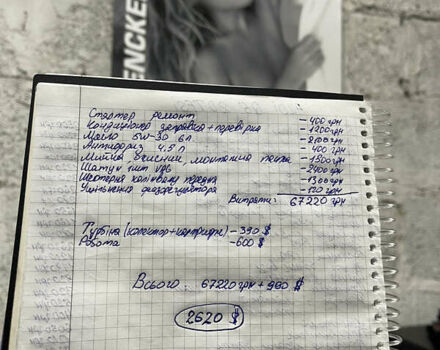 ENCKE
Стартер ремонт - 400 грн
Кондиціонер заправка + перевірка - 1200 грн
Масло 5w-30 6л - 2100 грн
Антифриз 4.5л - 400 грн
Мийка, монтажна - 1500 грн
Шатун 1шт - 2400 грн
Шестерня колінвалу - 1300 грн
Ущільнення фазорегулятора - 120 грн
Витрати: 67220 грн
Турбіна (колектор+картридж) - 390 $
Робота - 600 $
Всього: 67220 грн + 990 $
2620 $